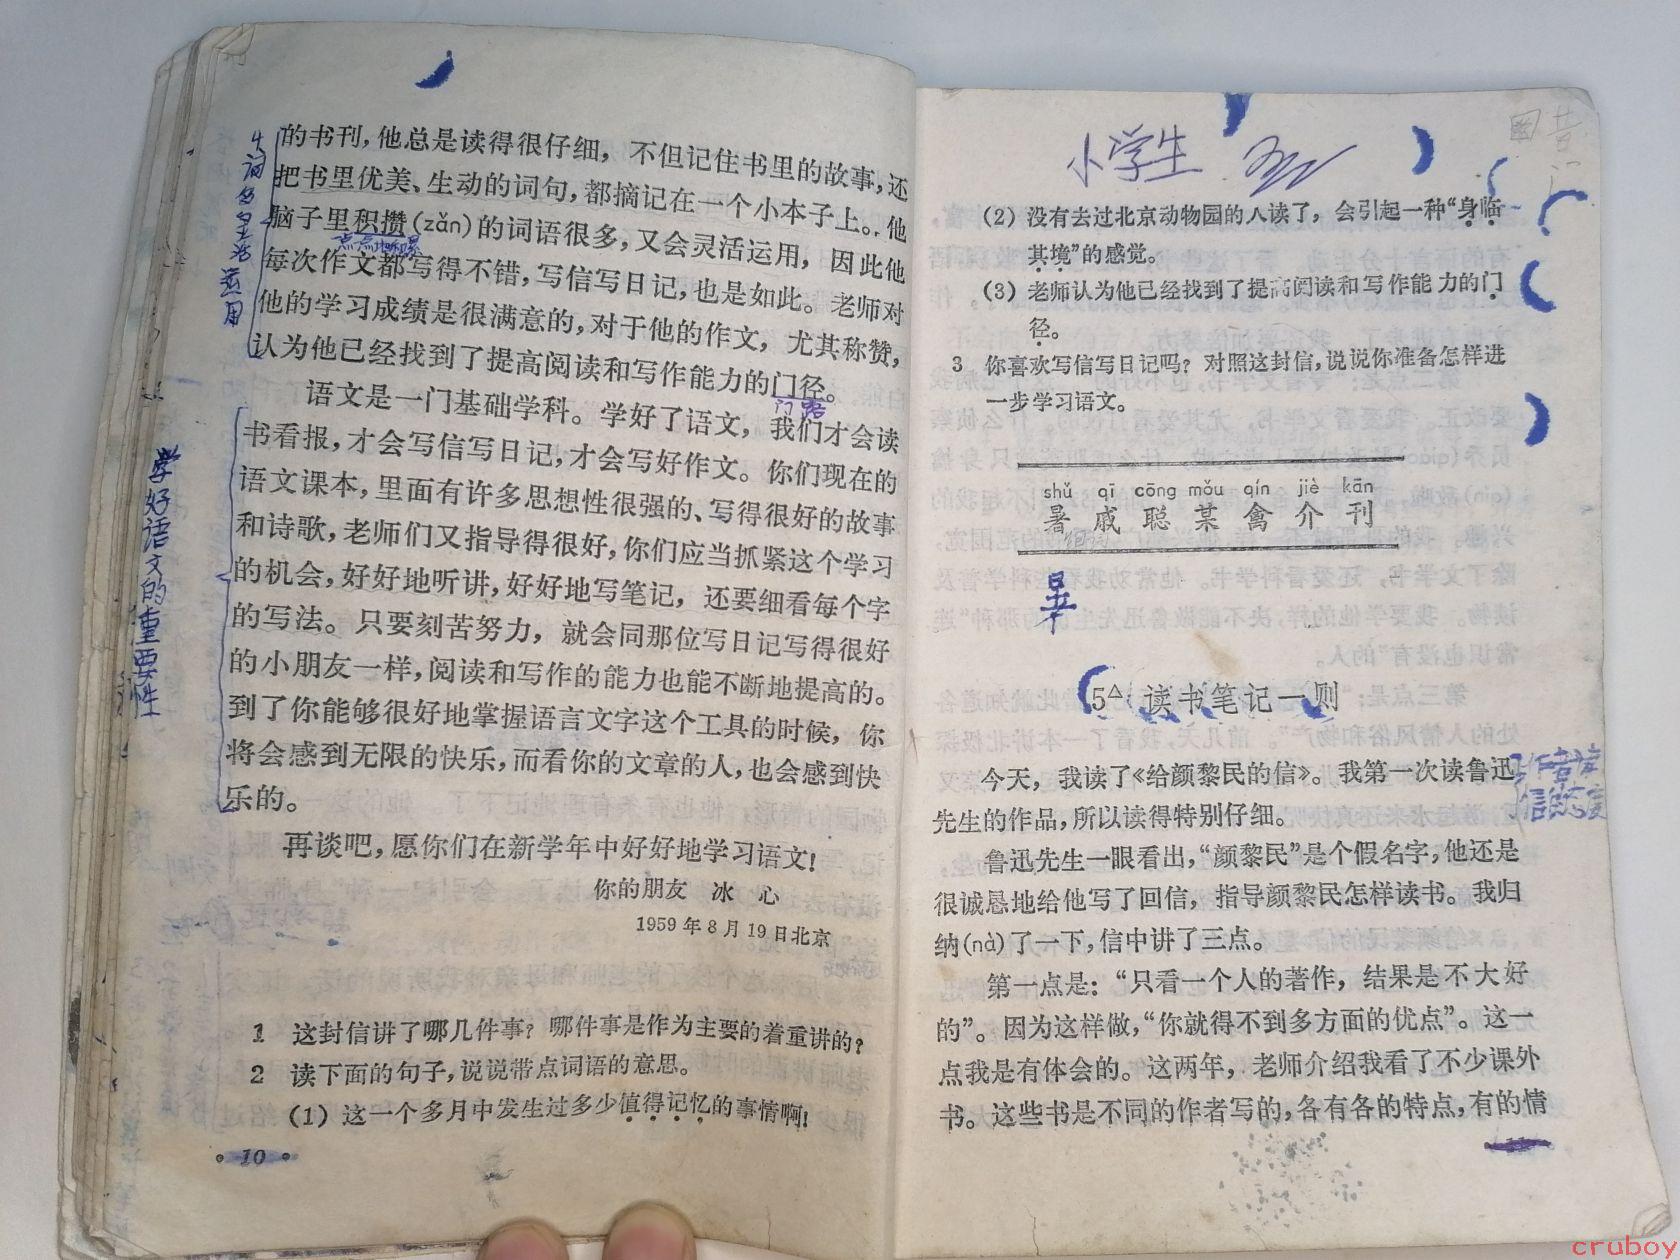 的书刊，他总是读得很仔细，不但记住书里的故事，还
把书里优美、生动的词句，都摘记在一个小本子上。他
脑子里积攒(zǎn)的词语很多，又会灵活运用，因此他
点点地积累
每次作文都写得不错，写信写日记，也是如此。老师对
他的学习成绩是很满意的，对于他的作文，尤其称赞，
认为他已经找到了提高阅读和写作能力的门径。
门路
语文是一门基础学科。学好了语文，我们才会读
书看报，才会写信写日记，才会写好作文。你们现在的
语文课本，里面有许多思想性很强的、写得很好的故事
和诗歌，老师们又指导得很好，你们应当抓紧这个学习
的机会，好好地听讲，好好地写笔记，还要细看每个字
的写法。只要刻苦努力，就会同那位写日记写得很好
的小朋友一样，阅读和写作的能力也能不断地提高的。
到了你能够很好地掌握语言文字这个工具的时候，你
将会感到无限的快乐，而看你的文章的人，也会感到快
乐的。
学好语文的重要性
再谈吧，愿你们在新学年中好好地学习语文！
你的朋友 冰 心
1959年8月19日北京
1 这封信讲了哪几件事？哪件事是作为主要的着重讲的？
2 读下面的句子，说说带点词语的意思。
(1) 这一个多月中发生过多少值得记忆的事情啊！
10
小学生
(2) 没有去过北京动物园的人读了，会引起一种“身临
其境”的感觉。
(3) 老师认为他已经找到了提高阅读和写作能力的门
径。
3 你喜欢写信写日记吗？对照这封信，说说你准备怎样进
一步学习语文。
shǔ qī cōng mǒu qín jiè kān
暑 戚 聪 某 禽 介 刊
5△ 读书笔记一则
今天，我读了《给颜黎民的信》。我第一次读鲁迅
先生的作品，所以读得特别仔细。
鲁迅先生一眼看出，“颜黎民”是个假名字，他还是
很诚恳地给他写了回信，指导颜黎民怎样读书。我归
纳(nà)了一下，信中讲了三点。
第一点是：“只看一个人的著作，结果是不大好
的”。因为这样做，“你就得不到多方面的优点”。这一
点我是有体会的。这两年，老师介绍我看了不少课外
书。这些书是不同的作者写的，各有各的特点，有的情
11
cruboy